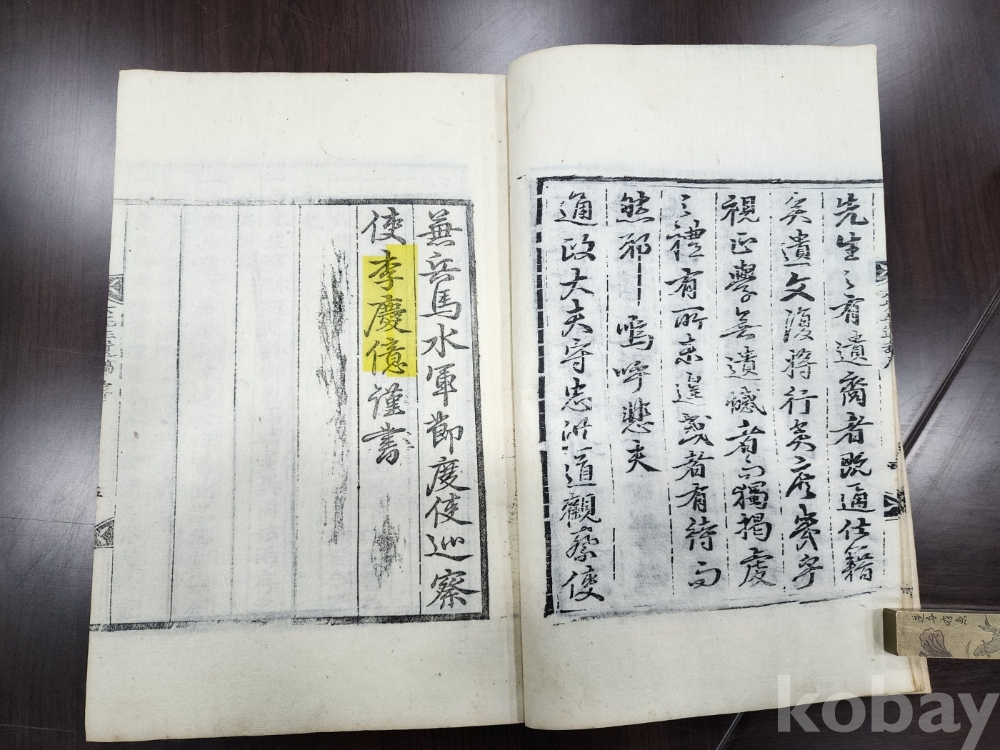 先生之有遺裔者既通仕籍
矣遺文復將行矣
視正學無遺憾者而獨揭虔
之禮有所未遑或者有待而
然邪嗚呼悲夫
通政大夫守忠淸道觀察使
兼兵馬水軍節度使巡察
使李慶億謹書
kobay